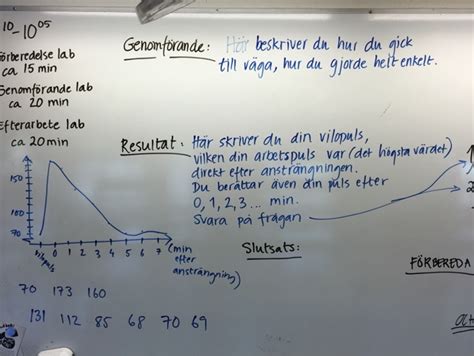 10-10⁰⁵
Förberedelse lab
ca 15 min
Genomförande lab
ca 20 min
Efterarbete lab
ca 20min
Genomförande: Här beskriver du hur du gick
till väga, hur du gjorde helt enkelt.
Resultat: Här skriver du din vilopuls,
vilken din arbetspuls var (det högsta värdet)
direkt efter ansträngningen.
Du berättar även din puls efter
0, 1, 2, 3 ... min.
Svara på frågan
Slutsats:
FÖRBEREDA
150
100
70
vilopuls 0 1 2 3 4 5 6 7 (min
efter
ansträngning)
70 173 160
131 112 85 68 70 69